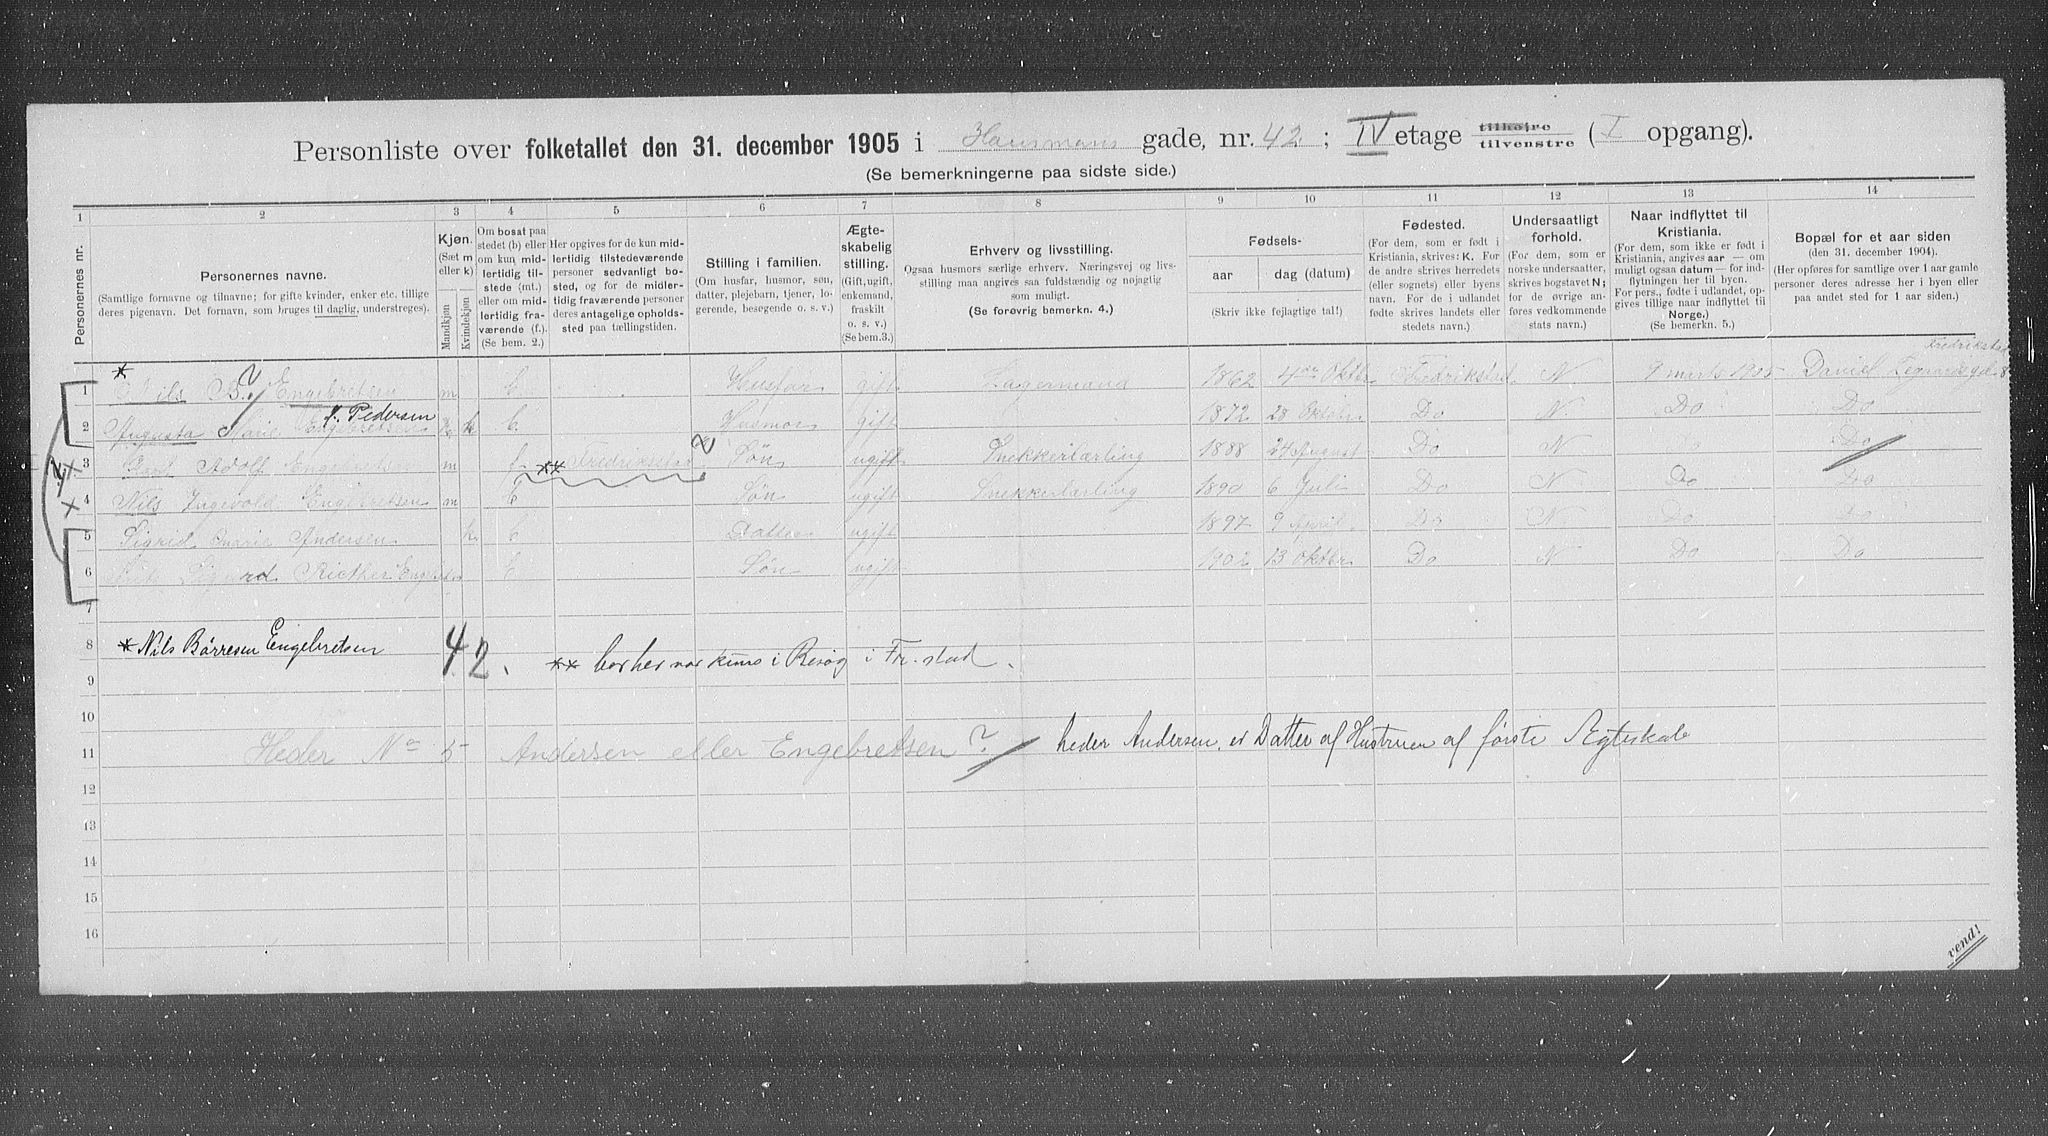 Personliste over folketallet den 31. december 1905 i Hausmans gade, nr. 42 ; IV etage tilhøire tilvenstre ( I opgang).
(Se bemerkningerne paa sidste side.)
1 2 3 4 5 6 7 8 9 10 11 12 13 14
Personernes nr.
Personernes navne.
(Samtlige fornavne og tilnavne; for gifte kvinder, enker etc. tillige
deres pigenavn. Det fornavn, som bruges til daglig, understreges).
Kjøn.
(Sæt m
eller k)
Mandkjøn
Kvindekjøn
Om bosat paa
stedet (b) eller
om kun mid-
lertidig til-
stede (mt.)
eller om mid-
lertidig fra-
værende (f.).
(Se bem. 2.)
Her opgives for de kun mid-
lertidig tilstedeværende
personer sedvanlig bo-
sted, og for de midler-
tidig fraværende personer
deres antagelige opholds-
sted paa tællingstiden.
Stilling i familien.
(Om husfar, husmor, søn,
datter, plejebarn, tjener, lo-
gerende, besøgende o. s. v.)
Ægte-
skabelig
stilling.
(Gift, ugift,
enkemand,
fraskilt
o. s. v.)
(Se bem.3.)
Erhverv og livsstilling.
Ogsaa husmors særlige erhverv. Næringsvej og livs-
stilling maa angives saa fuldstændig og nøjagtig
som muligt.
(Se forøvrig bemerkn. 4.)
Fødsels-
aar
dag (datum)
(Skriv ikke fejlagtige tal!)
Fødested.
(For dem, som er født i
Kristiania, skrives: K. For
de andre skrives herredets
(eller sognets) eller byens
navn. For de i udlandet
fødte skrives landets eller
stedets navn.)
Undersaatligt
forhold.
(For dem, som er
norske undersaatter,
skrives bogstavet N;
for de øvrige an-
føres vedkommende
stats navn.)
Naar indflyttet til
Kristiania.
(For dem, som ikke er født i
Kristiania, angives aar — om
muligt ogsaa datum — for ind-
flytningen her til byen.
For pers., fødte i udlandet, op-
gives tillige naar indflyttet til
Norge.)
(Se bemerkn. 5.)
Bopæl for et aar siden
(den 31. december 1904).
(Her opføres for samtlige over 1 aar gamle
personer deres adresse her i byen eller
paa andet sted for 1 aar siden.)
Fredrikstad
*
1 Nils B. ? Engebretsen m b Husfar gift Lagermand 1862 4de Oktbr Fredrikstad N 9 marts 1905 Daniel
f. Pedersen
2 Augusta Marie Engebretsen k b. Husmor gift 1872 28 Oktbr Do N. Do Do
3 Carl Adolf Engebretsen m f. ** Fredrikstad ? Søn ugift Snekkerlærling 1888 24 August Do N Do
4 Nils Ingevold Engebretsen m b Søn ugift Snekkerlærling 1890 6 Juli Do N Do Do
5 Sigrid Marie Andersen k b Datter ugift 1897 9 April Do N. Do Do
6 Sigurd Engebretsen b Søn ugift 1902 13 Oktbr Do N Do Do
7
8 * Nils Børresen Engebretsen 42. ** bor her var kuns i Besøg i Fr.stad.
9
10
11 Heder No 5 Andersen eller Engebretsen ? heder Andersen, er Datter af Hustruen af første Ægteskab
12
13
14
15
16
vend!